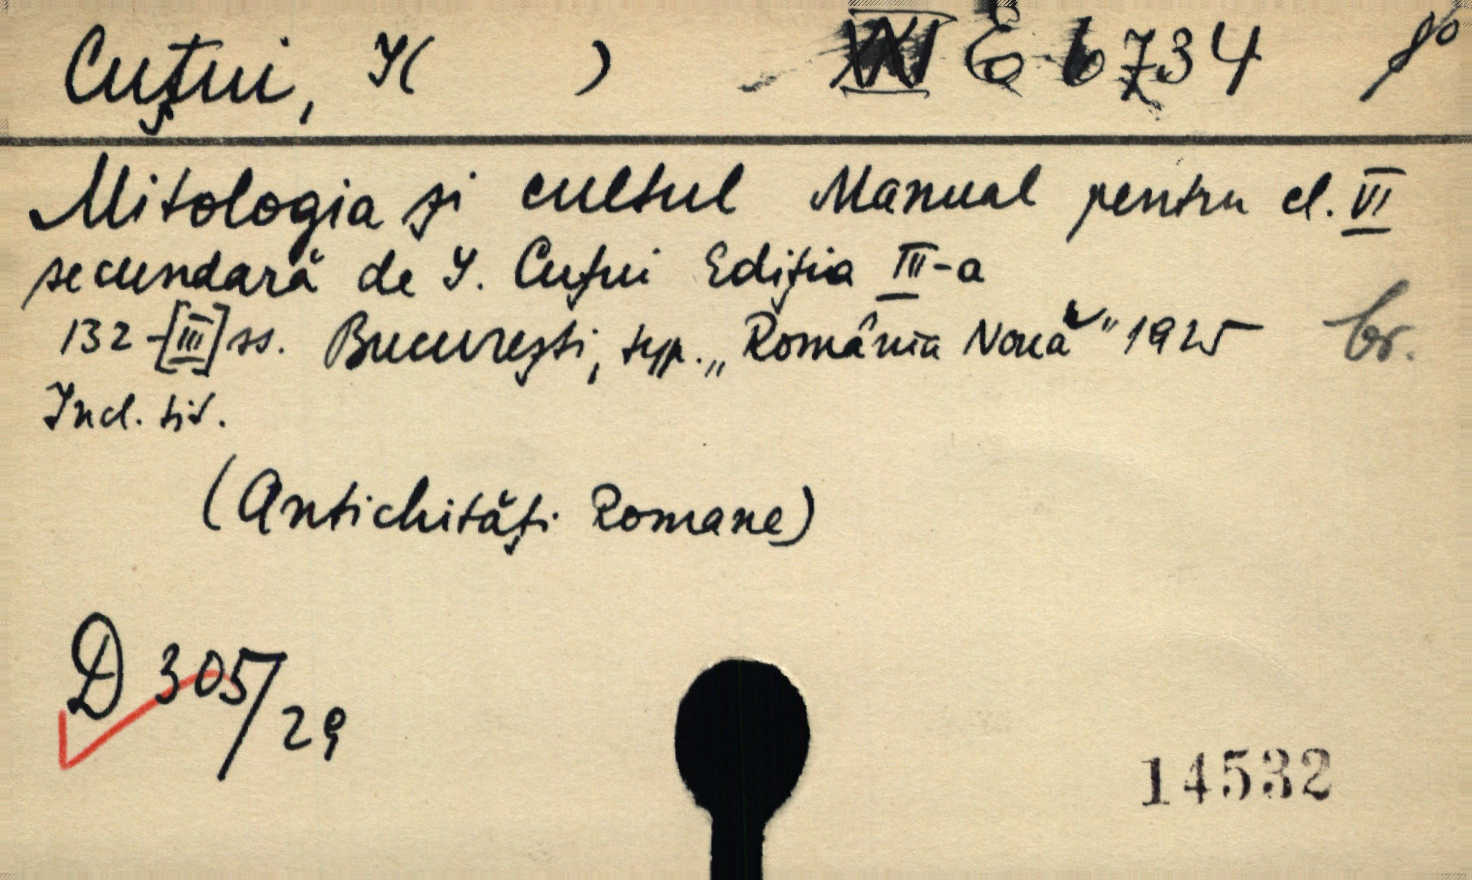 Cuțui, I( ) XXI E 6734 8º
Mitologia și cultul Manual pentru cl. VI
secundară de I. Cuțui Ediția III-a
132-[III] ss. București, typ. „România Nouă" 1925 br.
Incl. tit.
(Antichități Romane)
D 305/29
14532